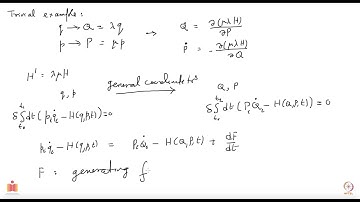 Trivial example:
q → Q = λq → Q̇ = ∂(μλH)/∂P
p → P = μp Ṗ = - ∂(μλH)/∂Q
H' = λμH
general coordinates
q, p Q, P
δ∫ dt (pᵢq̇ᵢ - H(q,p,t)) = 0 δ∫ dt (Pᵢ Q̇ᵢ - H(Q,P,t)) = 0
pᵢq̇ᵢ - H(q,p,t) = Pᵢ Q̇ᵢ - H(Q,P,t) + dF/dt
F : generating f